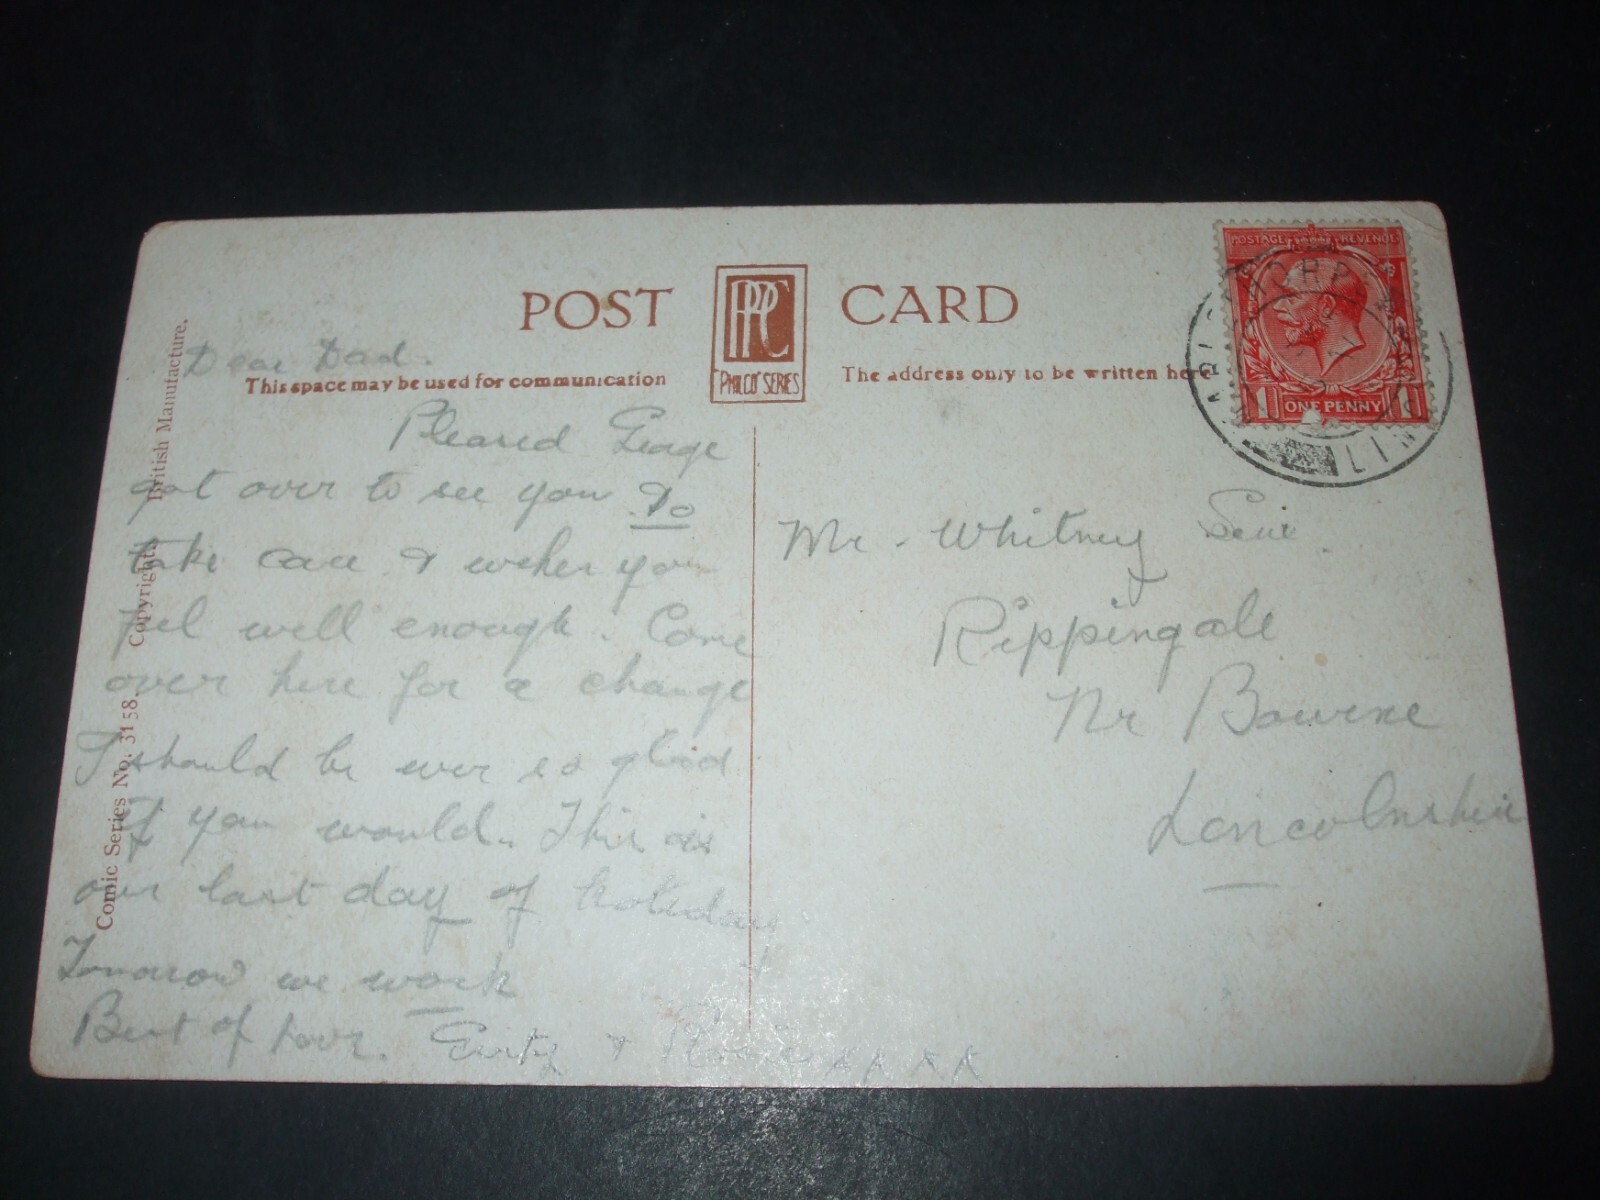 POST CARD
PPC
PHILCO SERIES
This space may be used for communication
The address only to be written here
POSTAGE REVENUE
1 ONE PENNY 1
LINCO
British Manufacture.
Copyright.
Comic Series No. 3158.
Dear Dad.
Pleased
got over to see you. Do
take care & when you
feel well enough. Come
over here for a change
I should be ever so glad
if you would. This is
our last day of holiday
Tomorrow we work
Best of love. & xxxx
Mr. Whitney Senr.
Rippingale
Nr Bourne
Lincolnshire